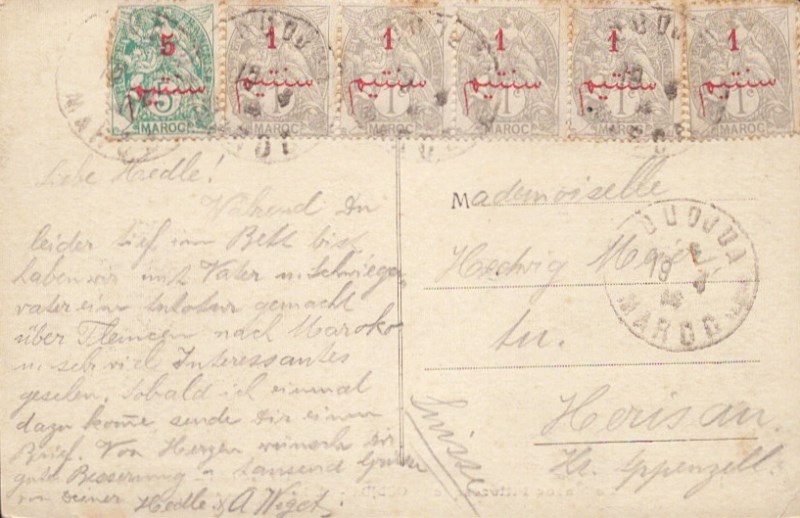 5 1 1 1 1 1
سنتيم سنتيم سنتيم سنتيم سنتيم سنتيم
5 1c 1c 1c 1c 1c
MAROC MAROC MAROC MAROC MAROC MAROC
Liebe Hedle!
Während Du
leider tief im Bett bist
haben wir mit Vater u. Schwieger
vater eine Autotur gemacht
über Tlemcen nach Maroko
u. seh viele Interessantes
gesehen. Sobald ich einmal
dazu kome sende Dir einen
Brief. Von Herzen wünsche Dir
gute Besserung u. tausend Grüsse
von Deiner Hedle. A. Wiget.
Mademoiselle
Hedwig
in.
Herisau.
Kt. Appenzell.
Suisse
OUDJDA
MAROC